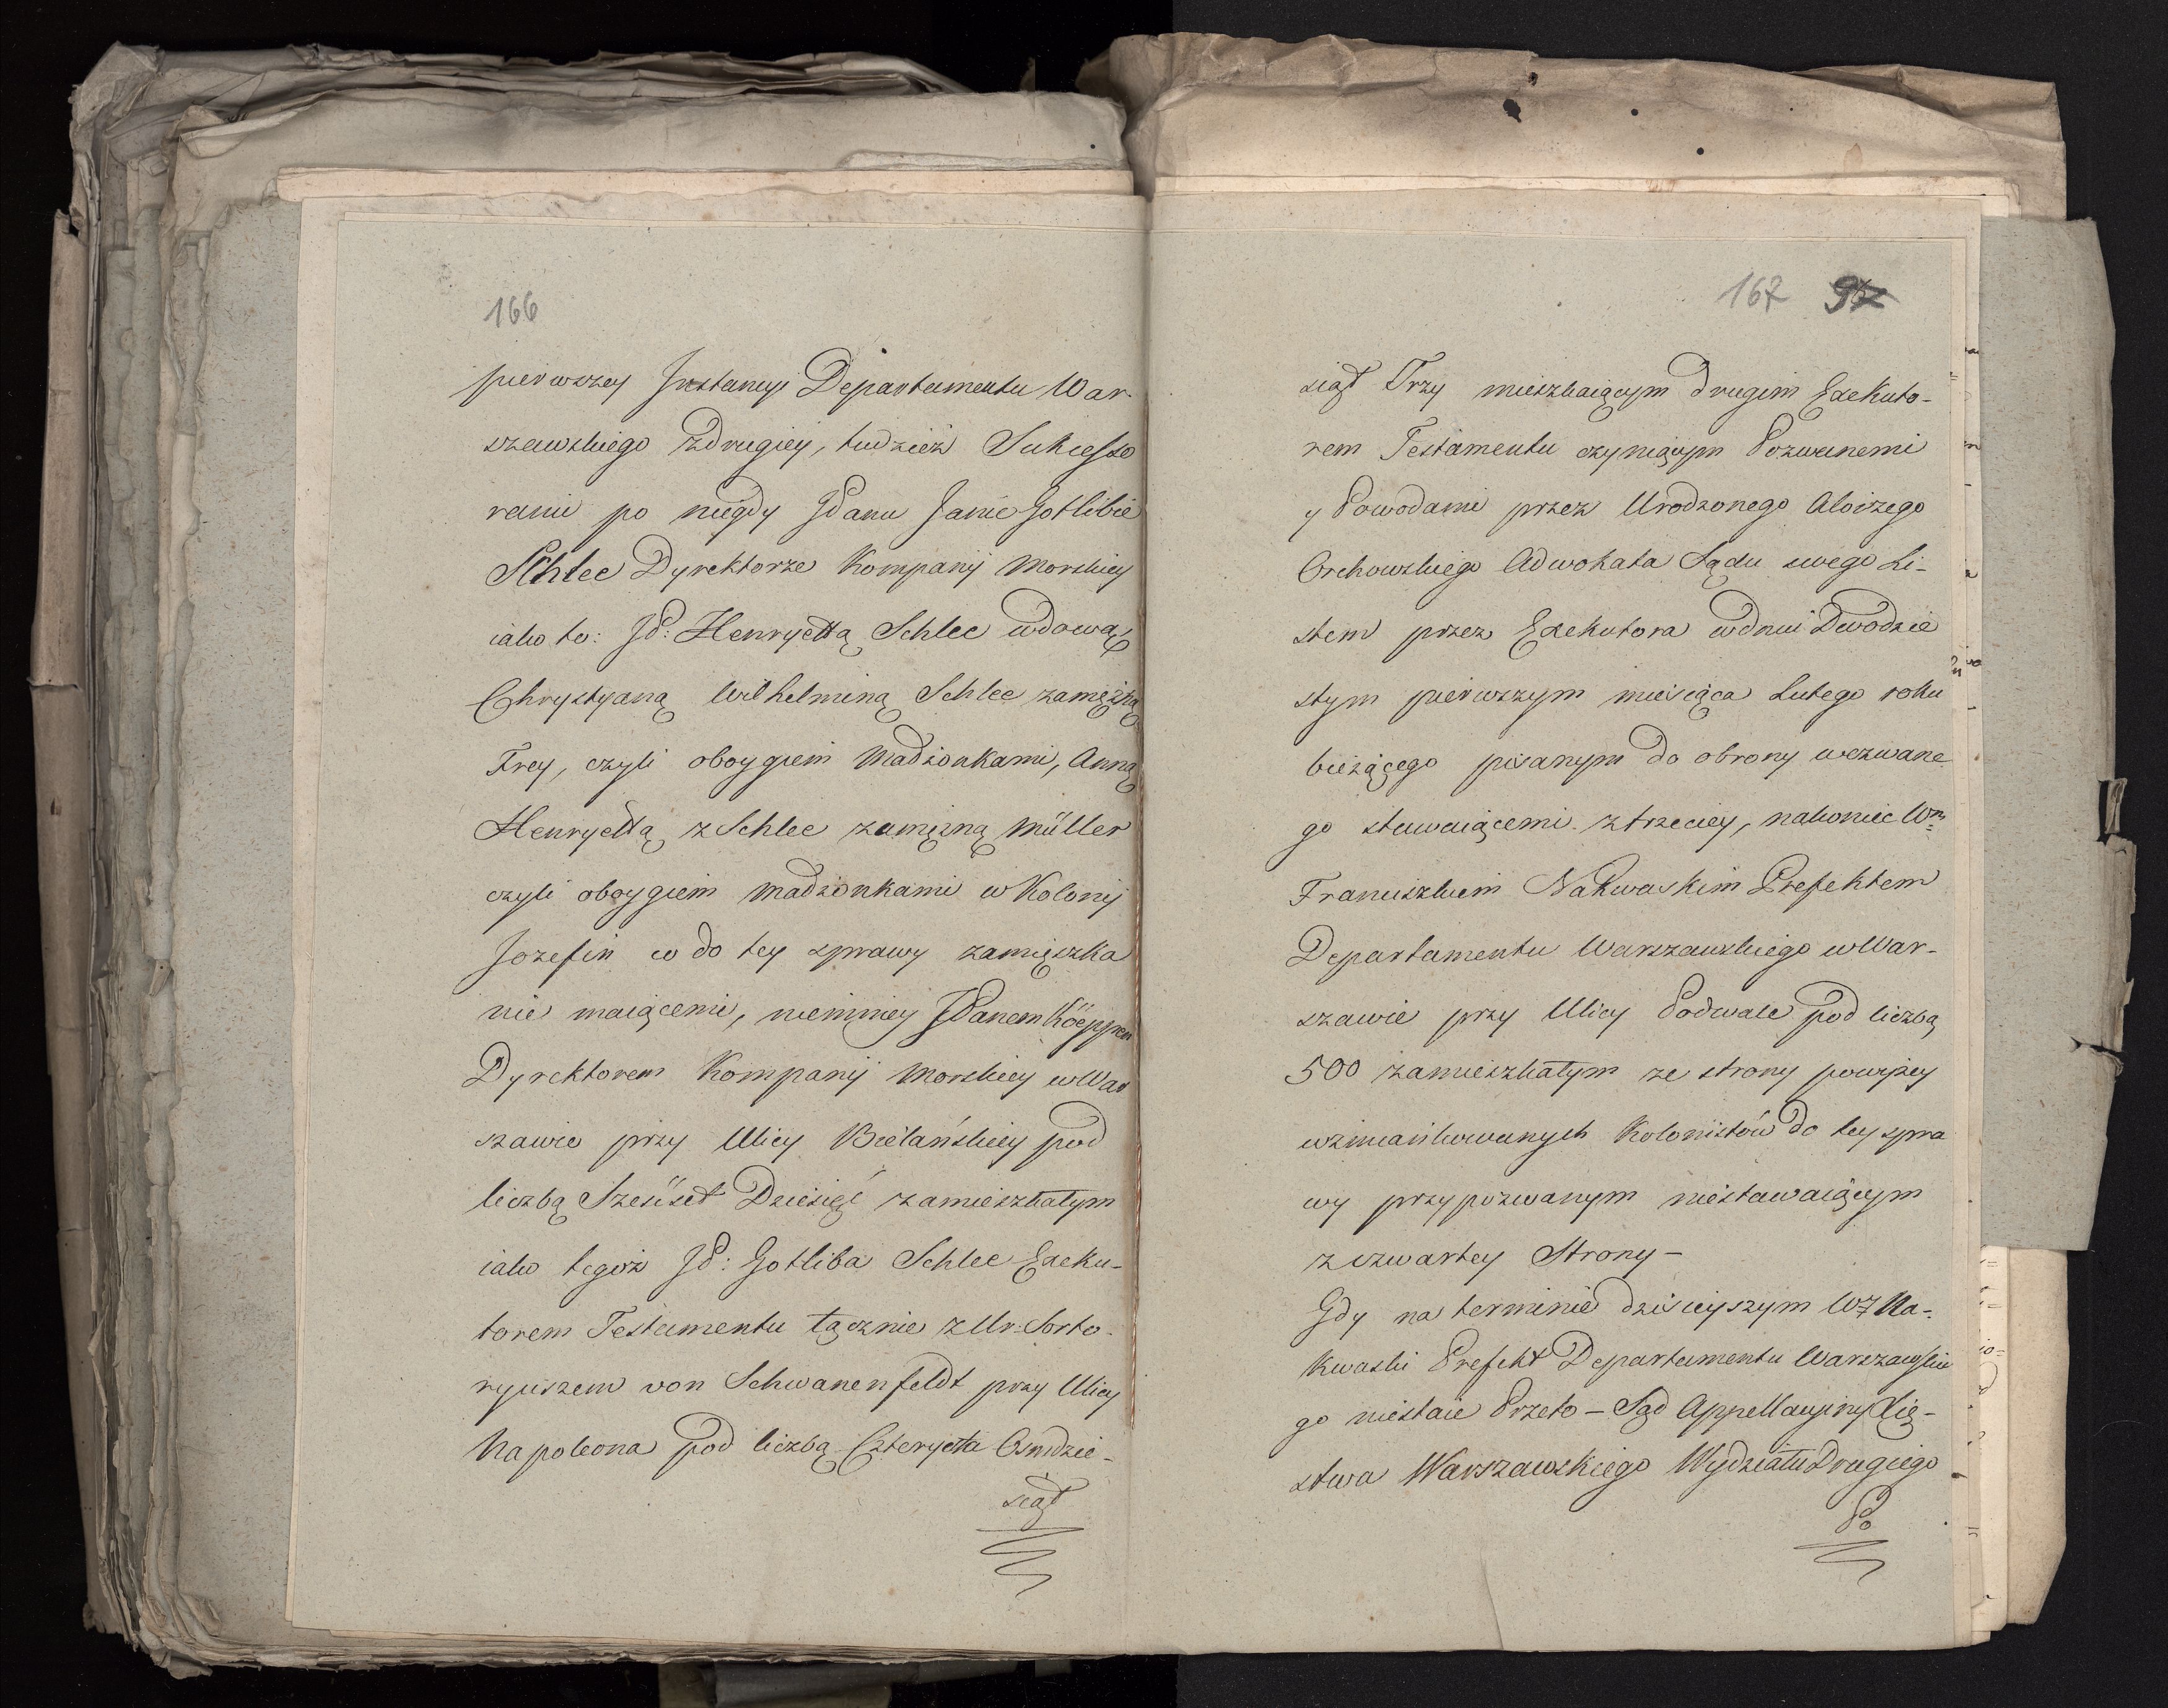 166
pierwszey Instancyi Departamentu War-
szawskiego zdrugiey, tudzież Sukcesso
rami po niegdy JPanu Janie Gotlibie
Schlee Dyrektorze Kompanij Morskiey
iako to: JP: Henryettą Schlee wdową,
Chrystyaną Wilhelminą Schlee zamężną
Frey, czyli oboygiem Madżonkami, Anną
Henryettą z Schlee zamężną Müller
czyli oboygiem Madżonkami w Kolonij
Jozefin co do tey sprawy zamięszka
nie maiącemi, niemniey JPanem Köeppen
Dyrektorem Kompanij Morskiey w War
szawie przy Ulicy Bielańskiey pod
liczbą Sześćset Dziesięć zamieszkałym
iako tegoż JP: Gotliba Schlee Exeku-
torem Testamentu łącznie z Ur: Sorto-
ryuszem von Schwanenfeldt przy Ulicy
Napoleona pod liczbą Czterysta Ośmdzie-
siąt
167 97
siąt Trzy mieszkaiącym drugim Exekuto-
rem Testamentu czyniącym Pozwanemi
y Powodami przez Urodzonego Aloizego
Orchowskiego Adwokata Sądu swego Li-
stem przez Exekutora w dniu Dwodzie
stym pierwszym miesiąca Lutego roku
bieżącego pisanym do obrony wezwane
go stawaiącemi ztrzeciey, nakoniec Wm
Franciszkiem Nakwaskim Prefektem
Departamentu Warszawskiego w War-
szawie przy Ulicy Podwale pod liczbą
500 zamieszkałym ze strony powyżey
wzmiańkowanych Kolonistów do tey spra
wy przypozwanym niestawaiącym
z czwartey Strony –
Gdy na terminie dzisieyszym WJ Na-
kwaski Prefekt Departamentu Warszawskie
go niestaie Przeto – Sąd Appellacyiny Xię-
stwa Warszawskiego Wydziału Drugiego
Po